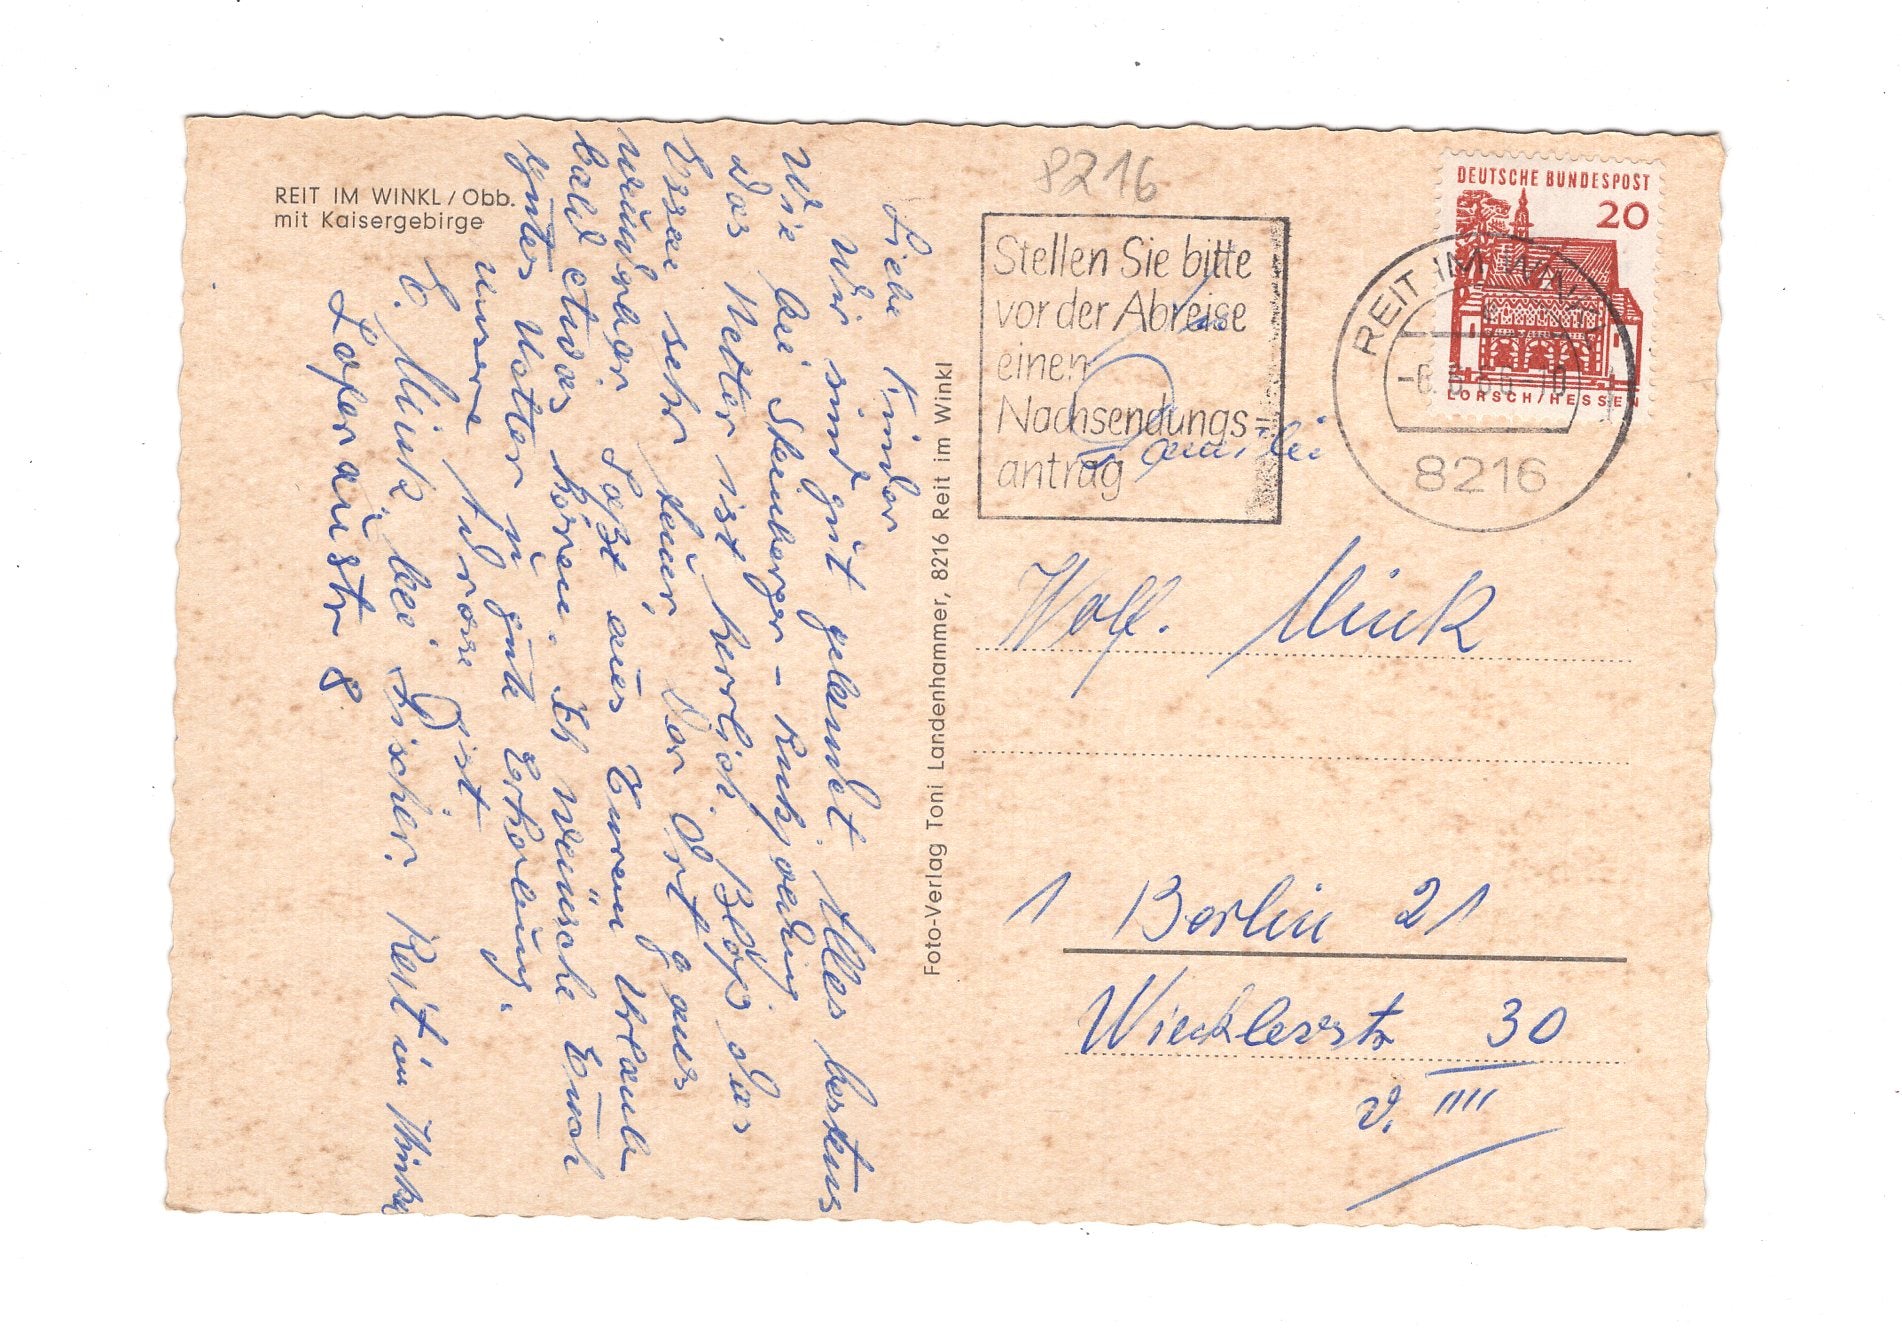 REIT IM WINKL / Obb.
mit Kaisergebirge
Liebe Kinder
Wir sind gut gelandet. Alles bestens
Wie bei Steinberger - Ruhpolding.
Das Wetter ist herrlich. Bloß das
Essen sehr teuer, der Ort ganz
wunderbar. Laßt aus Eurem Urlaub
bald etwas hören. Ich wünsche Euch
gutes Wetter u gute Erholung.
unsere Adresse ist
E. Mink, bei Fischer. Reit im Winkl
Loferaustr 8
Foto-Verlag Toni Landenhammer, 8216 Reit im Winkl
8216
Stellen Sie bitte
vor der Abreise
einen
Nachsendungs-
antrag
DEUTSCHE BUNDESPOST
20
LORSCH/HESSEN
REIT IM WINKL
8216
Familie
Wolf. Mink
1 Berlin 21
Wiclefstr 30
v. IIII